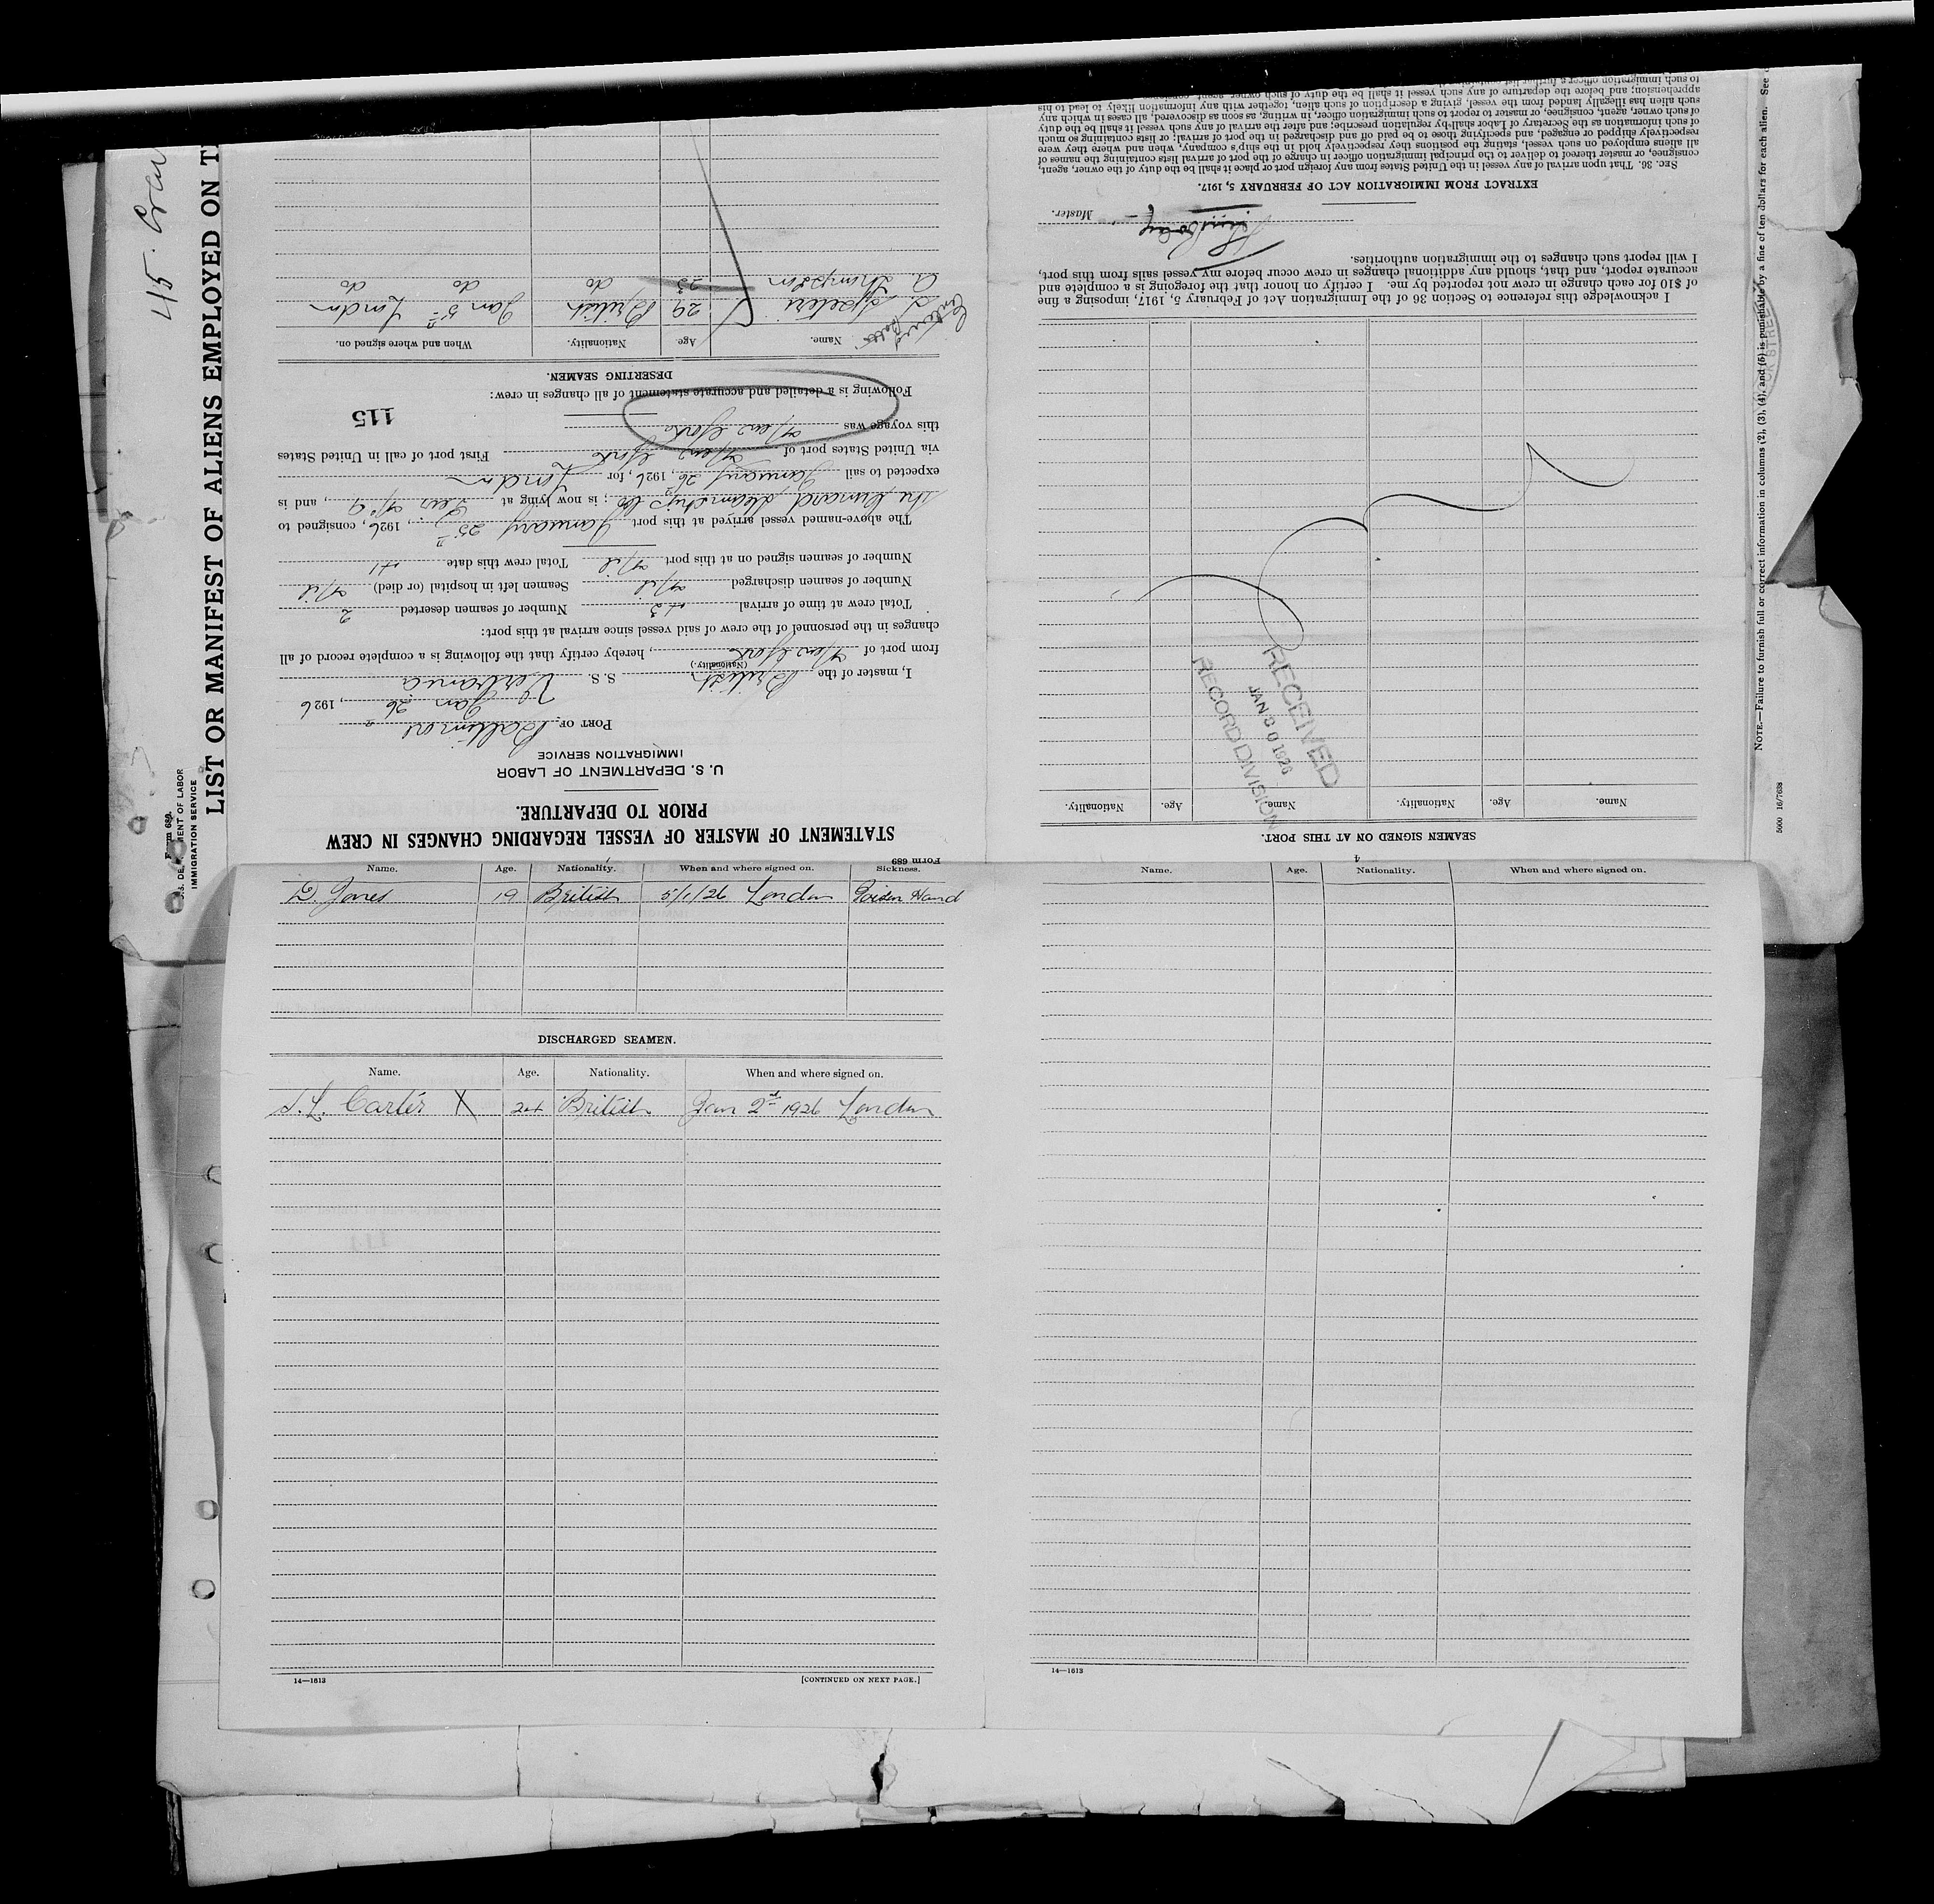 45. Crew
LIST OR MANIFEST OF ALIENS EMPLOYED ON T
Form 689
U.S. DEPARTMENT OF LABOR
IMMIGRATION SERVICE
Form 689
STATEMENT OF MASTER OF VESSEL REGARDING CHANGES IN CREW
PRIOR TO DEPARTURE.
U. S. DEPARTMENT OF LABOR
IMMIGRATION SERVICE
PORT OF Baltimore
Jan 26, 1926
I, master of the British S. S. Verbania
(Nationality.)
from port of New York, hereby certify that the following is a complete record of all
changes in the personnel of the crew of said vessel since arrival at this port:
Total crew at time of arrival 43 Number of seamen deserted 2
Number of seamen discharged Nil Seamen left in hospital (or died) Nil
Number of seamen signed on at this port Nil Total crew this date 41
The above-named vessel arrived at this port January 25, 1926, consigned to
the Cunard Steamship Co; is now lying at Pier No 9, and is
expected to sail January 26, 1926, for London
via United States port of New York First port of call in United States
this voyage was New York
115
Following is a detailed and accurate statement of all changes in crew:
DESERTING SEAMEN.
Name. Age. Nationality. When and where signed on.
29 British Jan 5th London
A. Thompson 23 do do do
SEAMEN SIGNED ON AT THIS PORT.
Name. Age. Nationality. Name. Age. Nationality.
RECEIVED
JAN 30 1926
RECORD DIVISION
I acknowledge this reference to Section 36 of the Immigration Act of February 5, 1917, imposing a fine
of $10 for each change in crew not reported by me. I certify on honor that the foregoing is a complete and
accurate report, and that, should any additional changes in crew occur before my vessel sails from this port,
I will report such changes to the immigration authorities.
Master.
EXTRACT FROM IMMIGRATION ACT OF FEBRUARY 5, 1917.
SEC. 36. That upon arrival of any vessel in the United States from any foreign port or place it shall be the duty of the owner, agent,
consignee, or master thereof to deliver to the principal immigration officer in charge of the port of arrival lists containing the names of
all aliens employed on such vessel, stating the positions they respectively hold in the ship's company, when and where they were
respectively shipped or engaged, and specifying those to be paid off and discharged in the port of arrival; or lists containing so much
of such information as the Secretary of Labor shall by regulation prescribe; and after the arrival of any such vessel it shall be the duty
of such owner, agent, consignee, or master to report to such immigration officer, in writing, as soon as discovered, all cases in which any
such alien has illegally landed from the vessel, giving a description of such alien, together with any information likely to lead to his
apprehension; and before the departure of any such vessel it shall be the duty of such owner, agent,
to such immigration officer a further list
NOTE.—Failure to furnish full or correct information in columns (2), (3), (4), and (5) is punishable by a fine of ten dollars for each alien. See
Name. Age. Nationality. When and where signed on. Sickness.
D. Jones 19 British 5/1/26 London Poison Hand
DISCHARGED SEAMEN.
Name. Age. Nationality. When and where signed on.
Carter X 24 British Jan 2nd 1926 London
14—1613
[CONTINUED ON NEXT PAGE.]
4
Name. Age. Nationality. When and where signed on.
14—1613